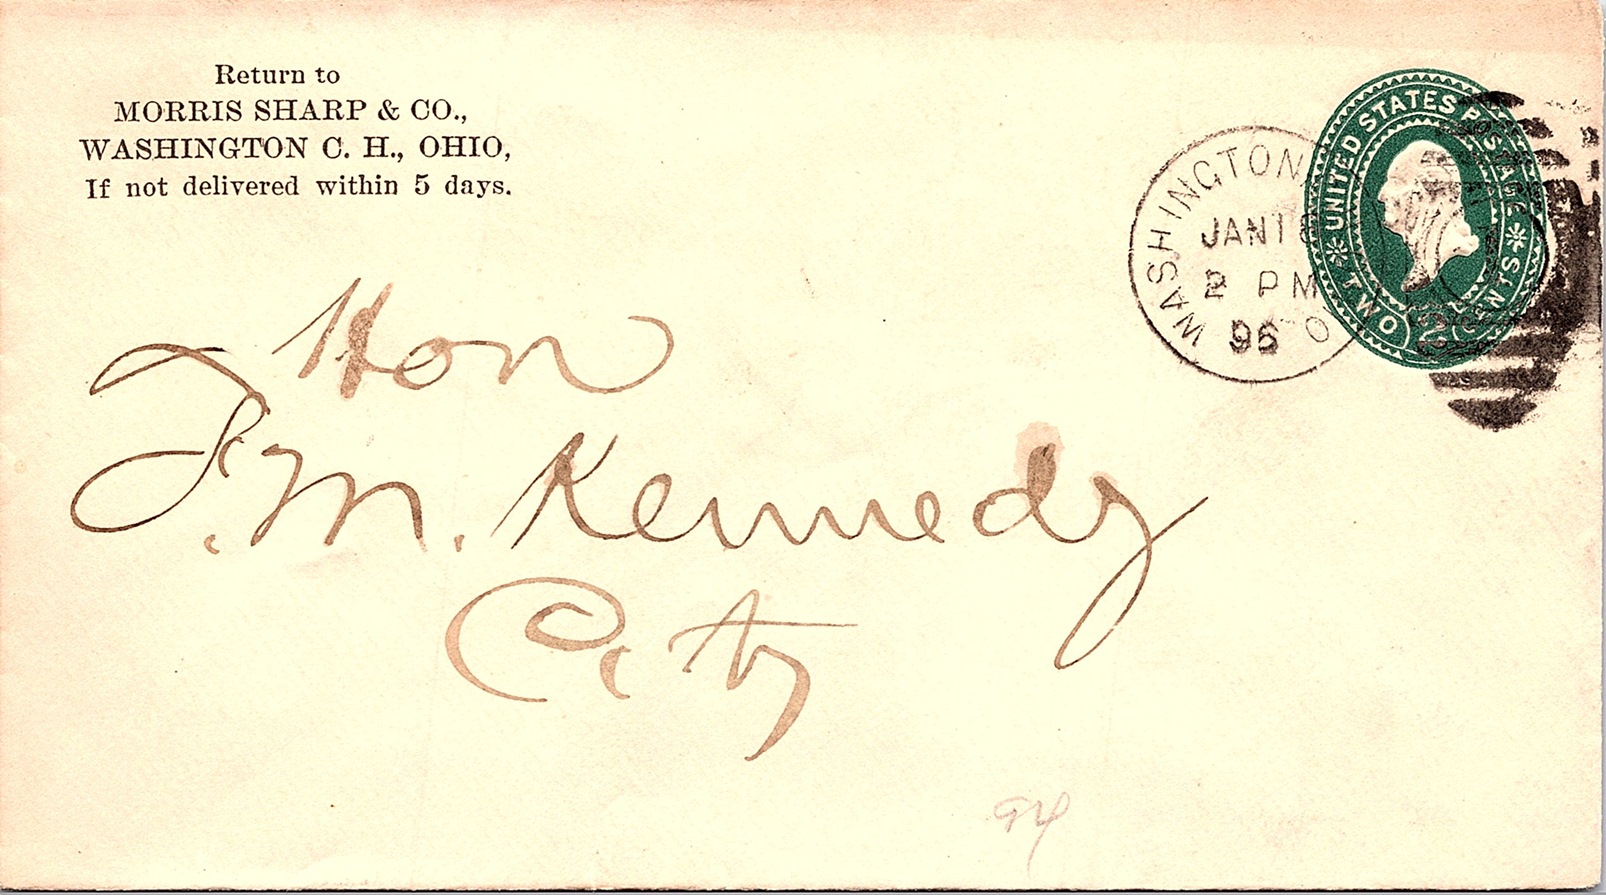 Return to
MORRIS SHARP & CO.,
WASHINGTON C. H., OHIO,
If not delivered within 5 days.
UNITED STATES POSTAGE
TWO CENTS
2
WASHINGTON
JAN
2 PM
96
O
Hon
M. Kennedy
City
94